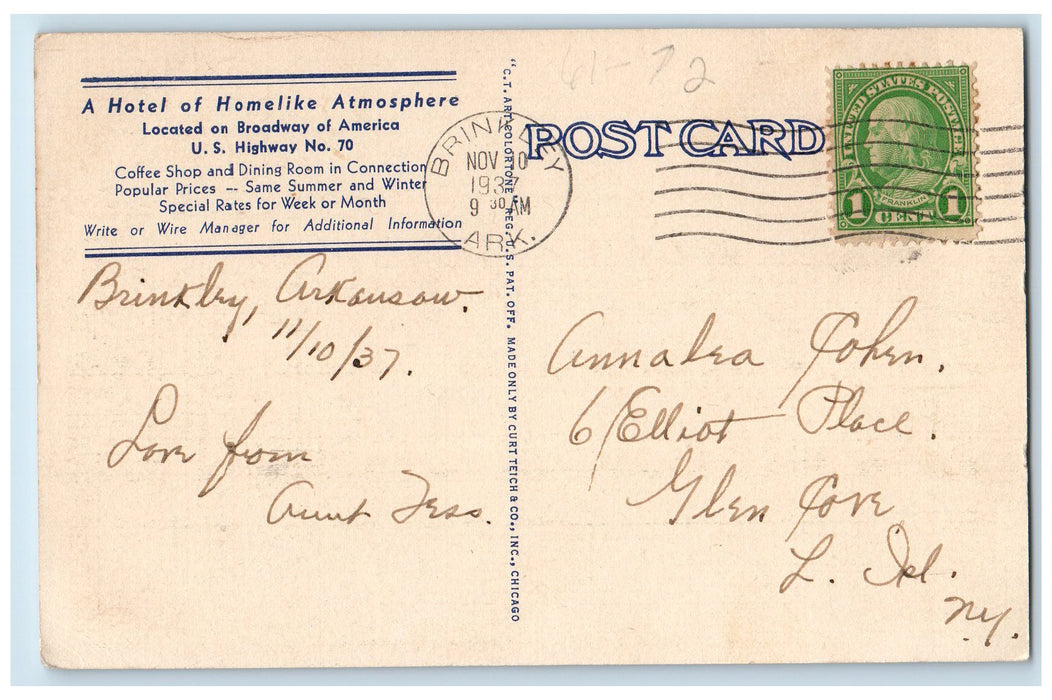 A Hotel of Homelike Atmosphere
Located on Broadway of America
U. S. Highway No. 70
Coffee Shop and Dining Room in Connection
Popular Prices -- Same Summer and Winter
Special Rates for Week or Month
Write or Wire Manager for Additional Information
Brinkley, Arkansaw.
11/10/37.
Love from
Aunt Tess.
"C.T. ART-COLORTONE" REG. U.S. PAT. OFF. MADE ONLY BY CURT TEICH & CO., INC., CHICAGO
61-72
POST CARD
BRINKLEY
NOV 10
1937
9 30 AM
ARK.
UNITED STATES POSTAGE
FRANKLIN
1 CENT 1
Annabea Cohen.
6 Elliot Place.
Glen Cove
L. Isl.
NY.